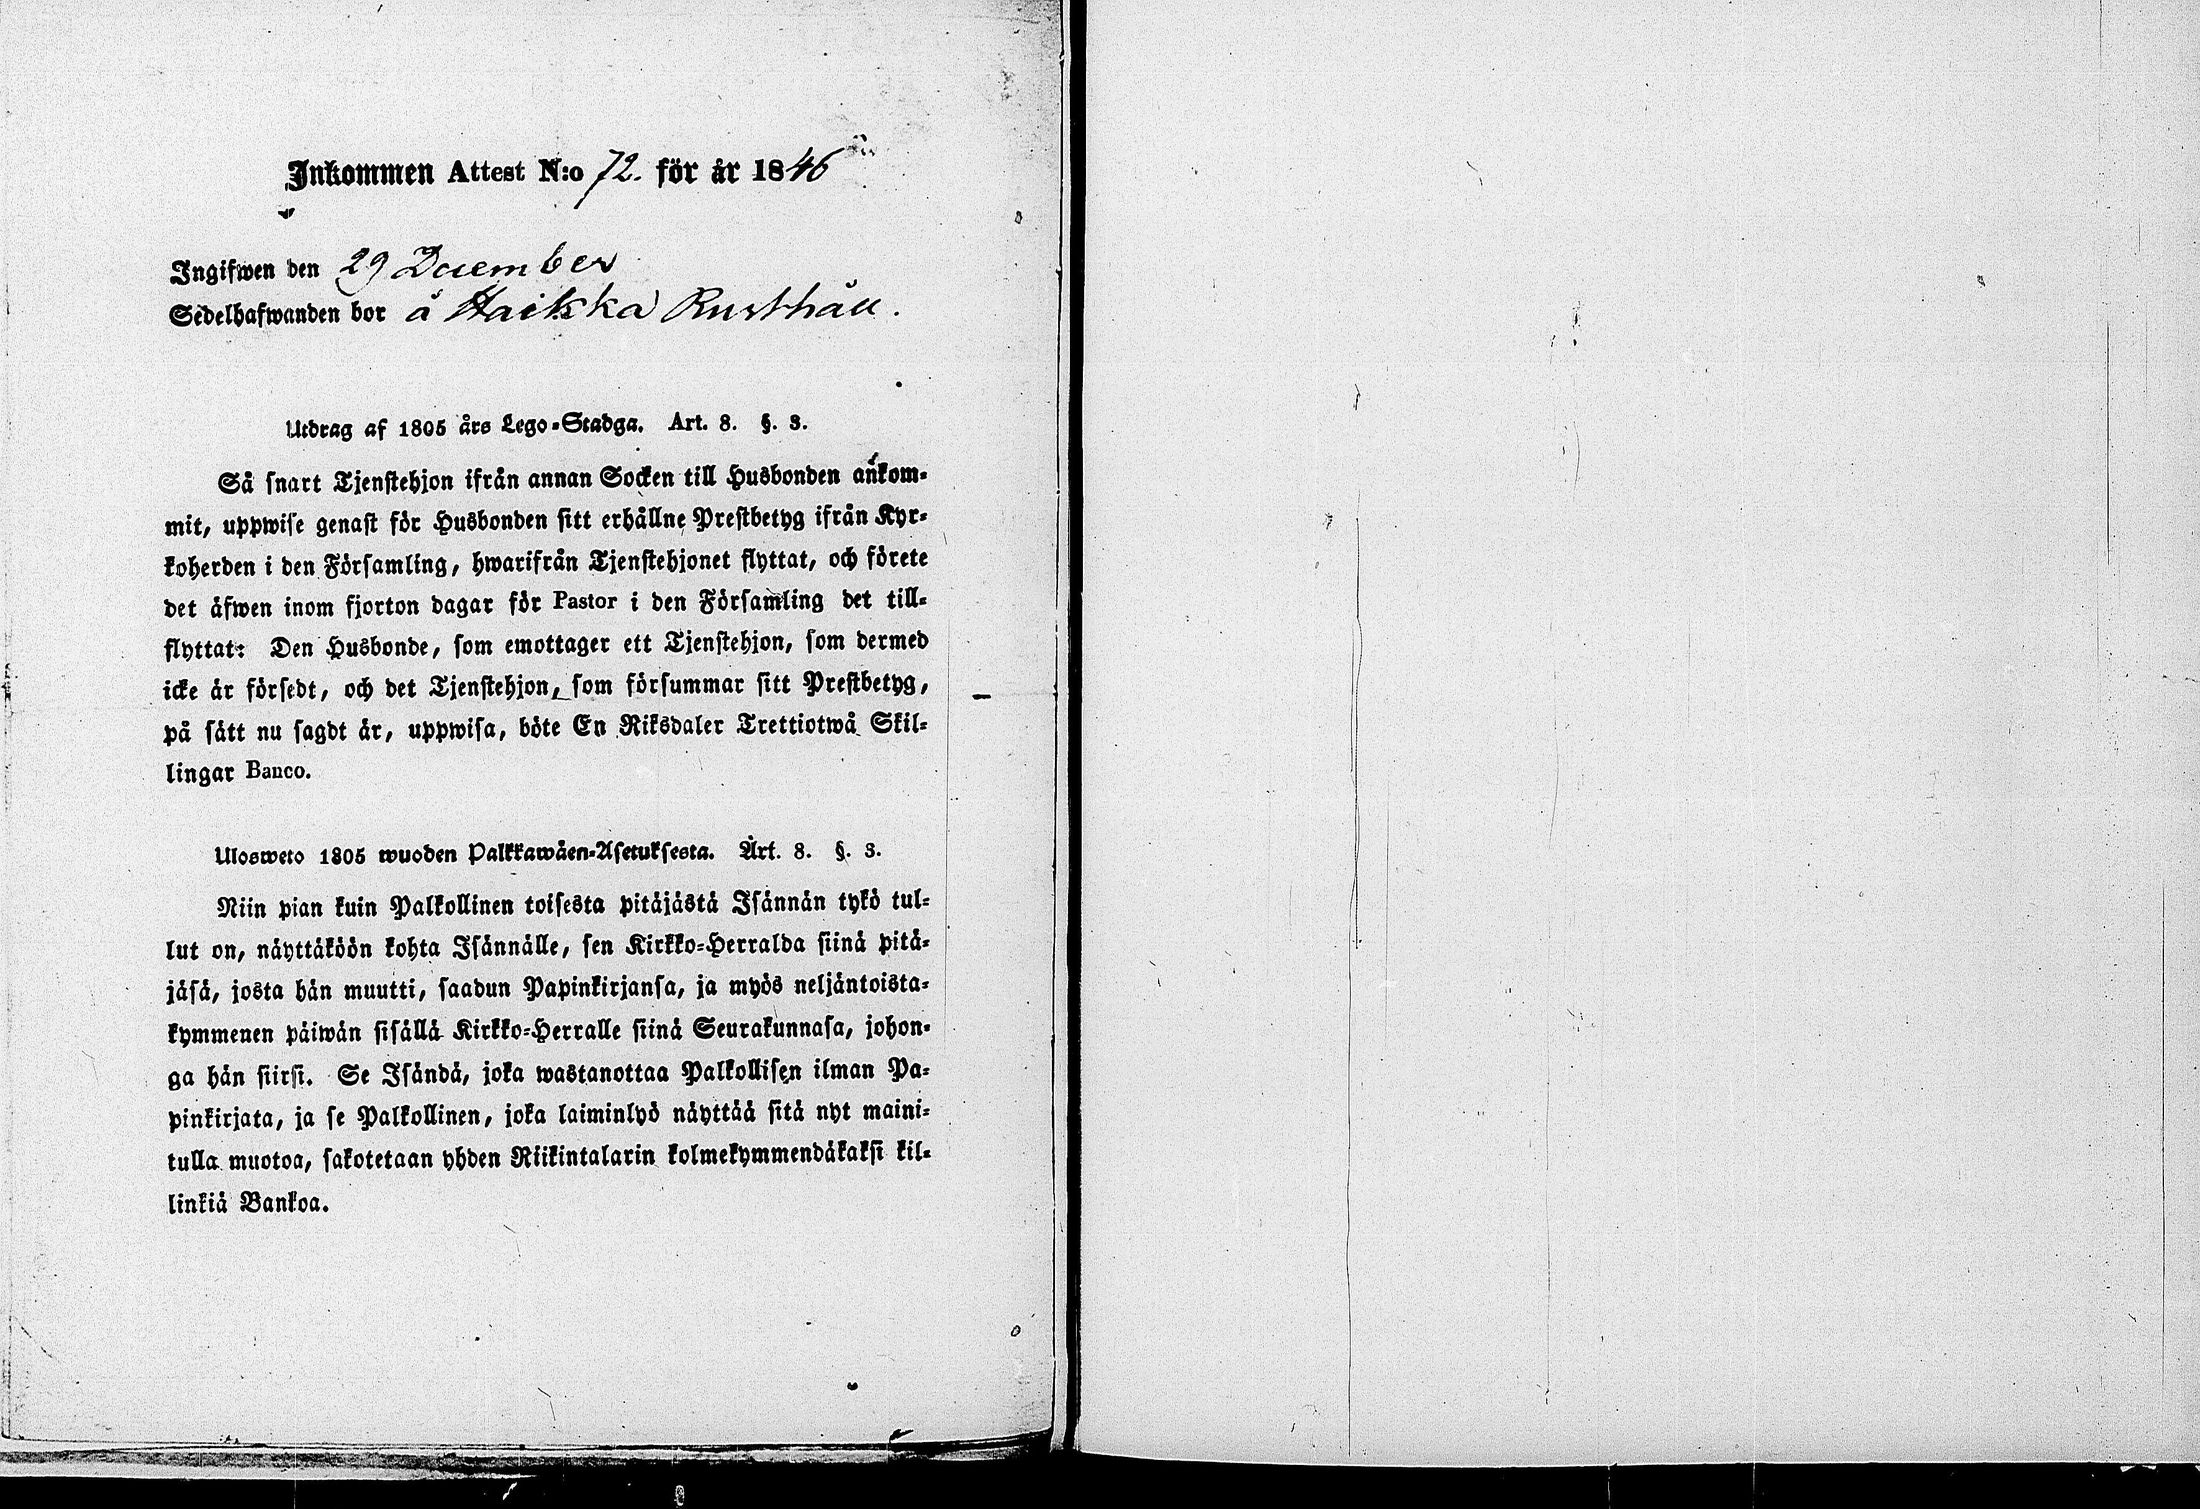 Inkommen Attest N:o 72. för år 1846
Ingifwen den 29 December
Sedelhafwanden bor å Haikka Rusthåll.
Utdrag af 1805 års Lego-Stadga. Art. 8. §. 3.
Så snart Tjenstehjon ifrån annan Socken till Husbonden ankom-
mit, uppwise genast för Husbonden sitt erhållne Prestbetyg ifrån Kyr-
koherden i den Församling, hwarifrån Tjenstehjonet flyttat, och förete
det äfwen inom fjorton dagar för Pastor i den Församling det till-
flyttat: Den Husbonde, som emottager ett Tjenstehjon, som dermed
icke är försedt, och det Tjenstehjon, som försummar sitt Prestbetyg,
på sätt nu sagdt är, uppwisa, böte En Riksdaler Trettiotwå Skil-
lingar Banco.
Ulosweto 1805 wuoden Palkkawäen-Asetuksesta. Art. 8. §. 3.
Niin pian kuin Palkollinen toisesta pitäjästä Isännän tykö tul-
lut on, näyttäköön kohta Isännälle, sen Kirkko-Herralda siinä pitä-
jäsä, josta hän muutti, saadun Papinkirjansa, ja myös neljäntoista-
kymmenen päiwän sisällä Kirkko-Herralle siinä Seurakunnasa, johon-
ga hän siirsi. Se Isändä, joka wastanottaa Palkollisen ilman Pa-
pinkirjata, ja se Palkollinen, joka laiminlyö näyttää sitä nyt maini-
tulla muotoa, sakotetaan yhden Riikintalarin kolmekymmendäkaksi kil-
linkiä Bankoa.